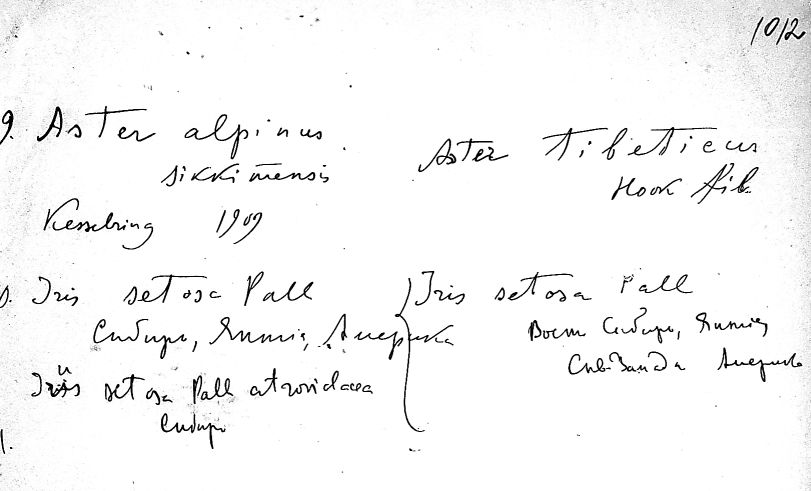 1012
9. Aster alpinus
sikkimensis
Kesselring 1909
Aster tibeticus
Hook fil.
Iris setosa Pall
Сибирь, Япония, Америка
Iris setosa Pall atroviolacea
Сибирь
Iris setosa Pall
Вост Сибирь, Япония
Америка